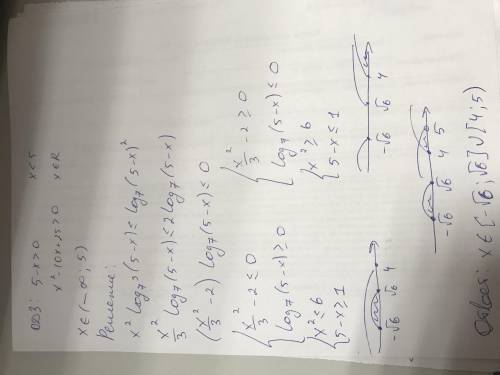 ОДЗ: 5-x>0 x<5
x²-10x+25>0 x∈R
x∈(-∞; 5)
Решение:
x² log₇³(5-x) ≤ log₇(5-x)²
x²/3 log₇(5-x) ≤ 2 log₇(5-x)
(x²/3 - 2) log₇(5-x) ≤ 0
{ x²/3 - 2 ≤ 0 { x²/3 - 2 ≥ 0
{ log₇(5-x) ≥ 0 { log₇(5-x) ≤ 0
{ x² ≤ 6 { x² ≥ 6
{ 5-x ≥ 1 { 5-x ≤ 1
-√6 √6 4 -√6 √6 4
-√6 √6 4 5
Ответ: x∈[-√6; √6]∪[4; 5)